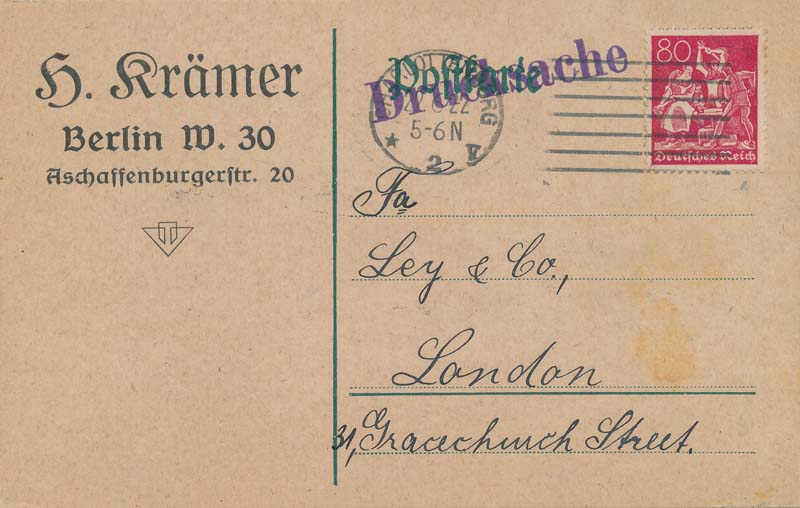 H. Krämer
Berlin W. 30
Aschaffenburgerstr. 20
Postkarte
Drucksache
22
5-6 N
2 E
80
Deutsches Reich
Fa
Ley & Co.,
London
31, Gracechurch Street.